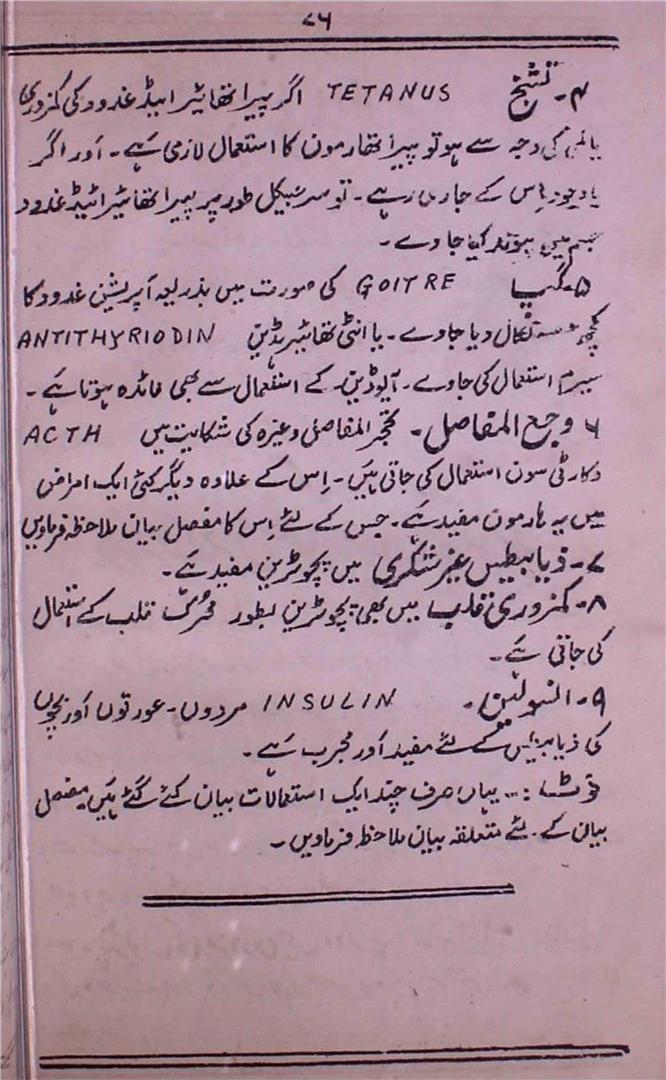 ۷۶
۴۔ تشنج TETANUS اگر پیرا تھائیرائیڈ غدود کی کمزوری
یا کمی کی وجہ سے ہو تو پیرا تھارمون کا استعمال لازمی ہے۔ اور اگر
باوجود اِس کے جاری رہے۔ تو سرجیکل طور پر پیرا تھائیرائیڈ غدود
جسم میں پیوند کیا جاوے۔
۵۔ گپ GOITRE کی صورت میں بذریعہ آپریشن غدود کا
کچھ حصہ نکال دیا جاوے۔ یا انٹی تھائیریڈین ANTITHYRIODIN
سیرم استعمال کی جاوے۔ آیوڈین کے استعمال سے بھی فائدہ ہوتا ہے۔
۶ وجع المفاصل۔ تحجر المفاصل وغیرہ کی شکایت میں ACTH
و کارٹی سون استعمال کی جاتی ہیں۔ اِس کے علاوہ دیگر کئی ایک امراض
میں یہ ہارمون مفید ہے۔ جس کے لئے اِس کا مفصل بیان ملاحظہ فرماویں
۷۔ ذیابیطیس غیر شکری میں پچوٹرین مفید ہے۔
۸۔ کمزوری قلب میں بھی پچوٹرین بطور محرک قلب کے استعمال
کی جاتی ہے۔
۹۔ انسولین۔ INSULIN مردوں۔ عورتوں اور بچوں
کی ذیابیطیس کے لئے مفید اور مجرب ہے۔
نوٹ :۔ یہاں صرف چند ایک استعمالات بیان کئے گئے ہیں مفصل
بیان کے لئے متعلقہ بیان ملاحظہ فرماویں۔